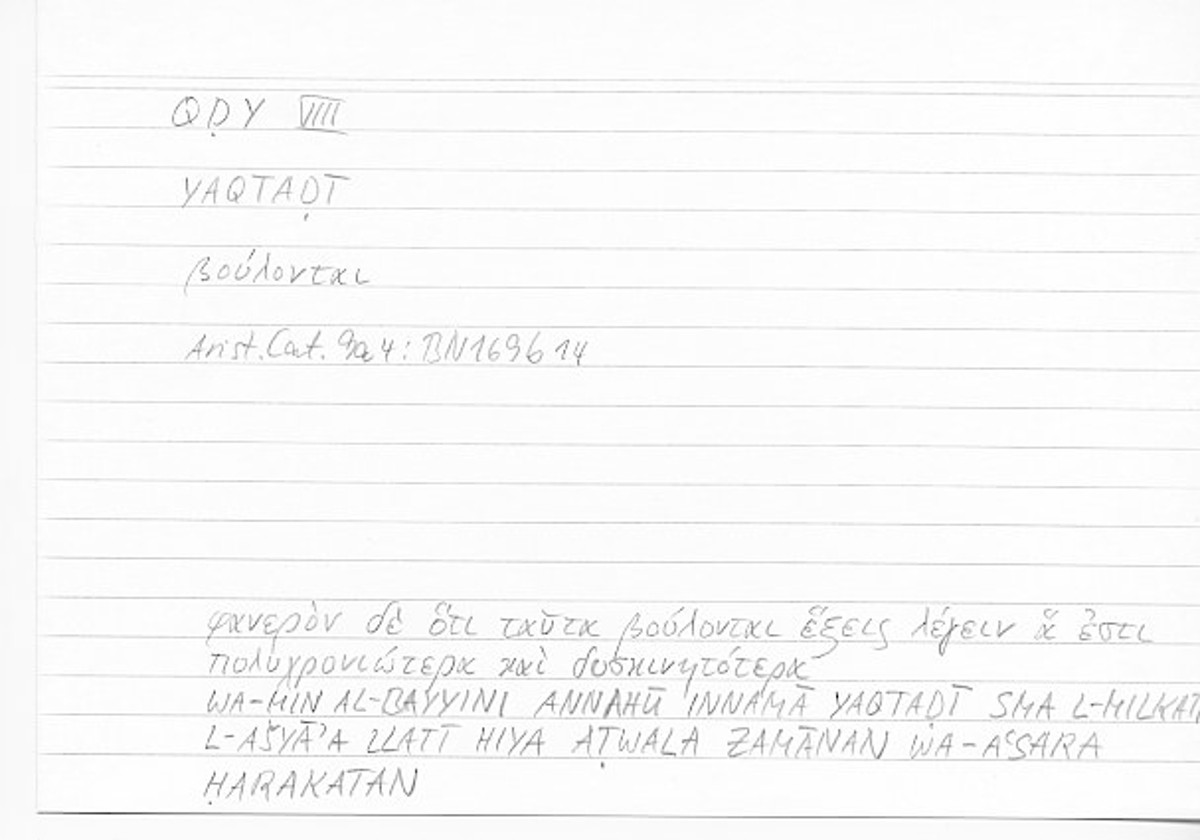 QḌY VIII
YAQTAḌĪ
βούλονται
Arist. Cat. 9a4: BN169b14
φανερὸν δὲ ὅτι ταῦτα βούλονται ἕξεις λέγειν ἅ ἐστι
πολυχρονιώτερα καὶ δυσκινητότερα
WA-MIN AL-BAYYINI ANNAHŪ INNAMĀ YAQTAḌĪ SMA L-MILKATI
L-AŠYĀʾA LLATĪ HIYA AṬWALA ZAMĀNAN WA-AʿSARA
ḤARAKATAN